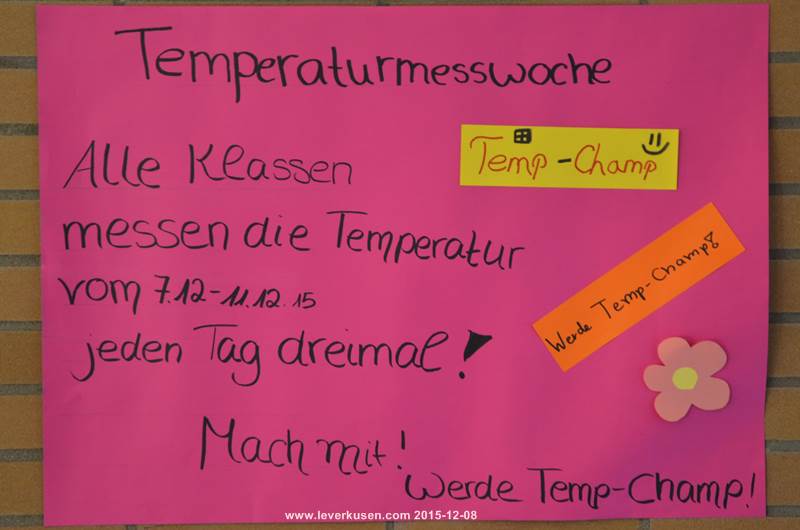 Temperaturmesswoche
Temp-Champ
Alle Klassen
messen die Temperatur
vom 7.12-11.12.15
jeden Tag dreimal!
Werde Temp-Champ!
Mach mit!
Werde Temp-Champ!
www.leverkusen.com 2015-12-08